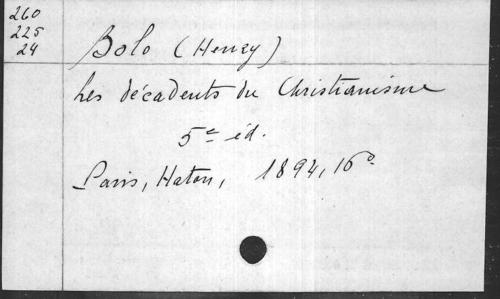 260
225
24
Bolo (Henry)
Les décadents du Christianisme
5e éd.
Paris, Haton, 1894, 16º.